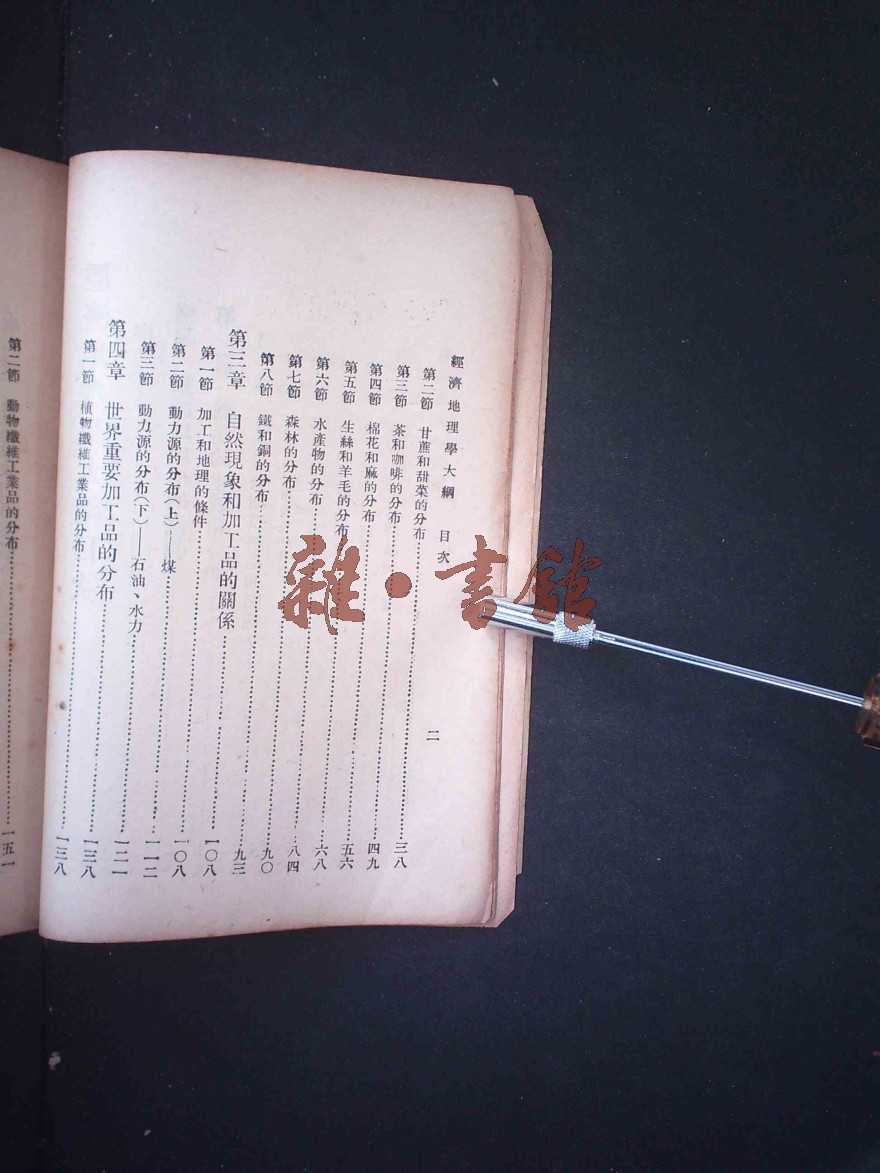 經濟地理學大綱 目次 二
第二節 甘蔗和甜菜的分布……三八
第三節 茶和咖啡的分布……四九
第四節 棉花和麻的分布……五六
第五節 生絲和羊毛的分布……六八
第六節 水產物的分布……八四
第七節 森林的分布……九〇
第八節 鐵和銅的分布……九三
第三章 自然現象和加工品的關係……一〇八
第一節 加工和地理的條件……一〇八
第二節 動力源的分布(上)——煤……一一二
第三節 動力源的分布(下)——石油、水力……一二一
第四章 世界重要加工品的分布……一三八
第一節 植物纖維工業品的分布……一三八
第二節 動物纖維工業品的分布……一五一
雜·書館